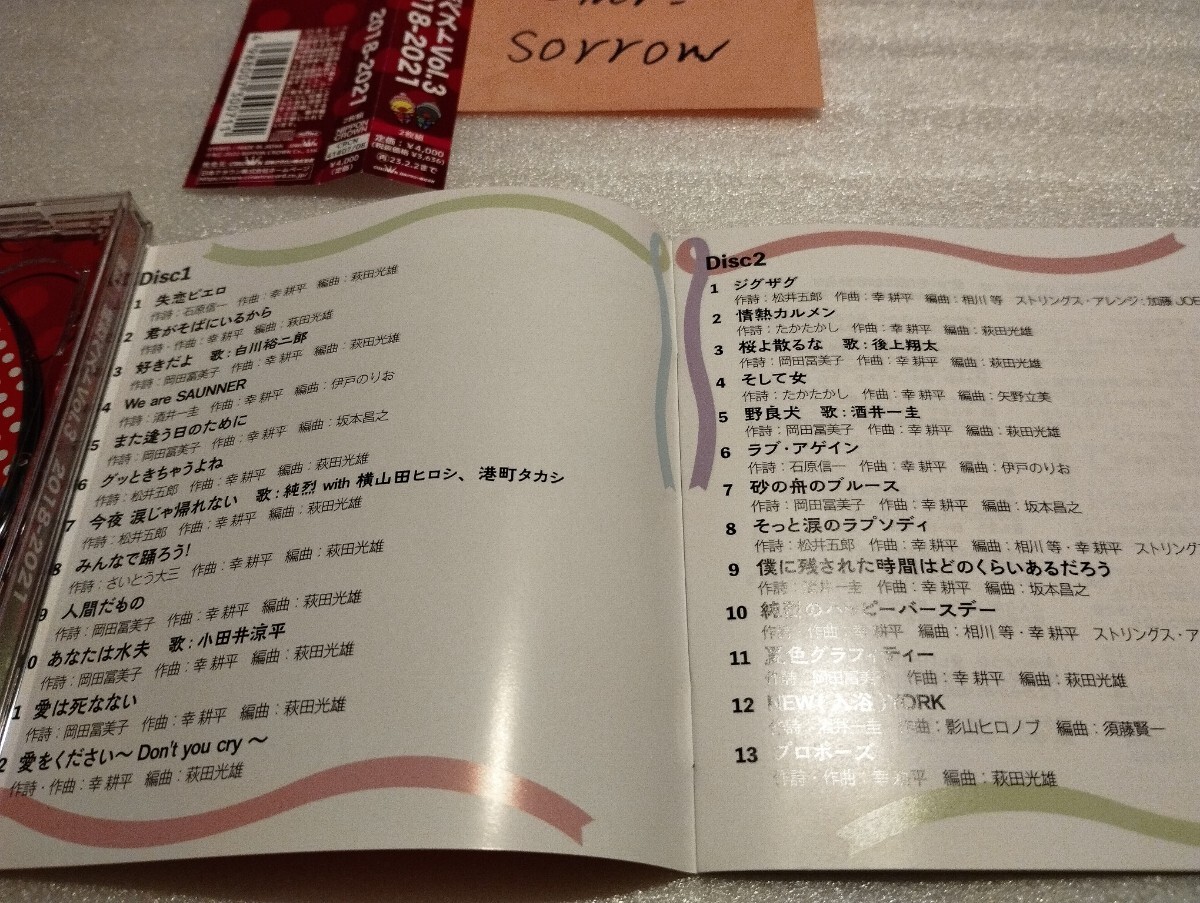 sorrow
Vol.3
2018-2021
2018-2021
2枚組
NIPPON CROWN
¥4,000
(定価)
2枚組
定価：¥4,000
(税抜価格 ¥3,636)
(再)23.2.2まで
Vol.3 2018-2021
Disc1
1 失恋ピエロ
作詩：石原信一 作曲：幸 耕平 編曲：萩田光雄
2 君がそばにいるから
作詩・作曲：幸 耕平 編曲：萩田光雄
3 好きだよ 歌：白川裕二郎
作詩：岡田冨美子 作曲：幸 耕平 編曲：萩田光雄
4 We are SAUNNER
作詩：酒井一圭 作曲：幸 耕平 編曲：伊戸のりお
5 また逢う日のために
作詩：岡田冨美子 作曲：幸 耕平 編曲：坂本昌之
6 グッときちゃうよね
作詩：松井五郎 作曲：幸 耕平 編曲：萩田光雄
7 今夜 涙じゃ帰れない 歌：純烈 with 横山田ヒロシ、港町タカシ
作詩：松井五郎 作曲：幸 耕平 編曲：萩田光雄
8 みんなで踊ろう!
作詩：さいとう大三 作曲：幸 耕平 編曲：萩田光雄
9 人間だもの
作詩：岡田冨美子 作曲：幸 耕平 編曲：萩田光雄
0 あなたは水夫 歌：小田井涼平
作詩：岡田冨美子 作曲：幸 耕平 編曲：萩田光雄
1 愛は死なない
作詩：岡田冨美子 作曲：幸 耕平 編曲：萩田光雄
2 愛をください〜 Don't you cry 〜
作詩・作曲：幸 耕平 編曲：萩田光雄
Disc2
1 ジグザグ
作詩：松井五郎 作曲：幸 耕平 編曲：相川 等 ストリングス・アレンジ：加藤 JOE
2 情熱カルメン
作詩：たかたかし 作曲：幸 耕平 編曲：萩田光雄
3 桜よ散るな 歌：後上翔太
作詩：岡田冨美子 作曲：幸 耕平 編曲：萩田光雄
4 そして女
作詩：たかたかし 作曲：幸 耕平 編曲：矢野立美
5 野良犬 歌：酒井一圭
作詩：岡田冨美子 作曲：幸 耕平 編曲：萩田光雄
6 ラブ・アゲイン
作詩：石原信一 作曲：幸 耕平 編曲：伊戸のりお
7 砂の舟のブルース
作詩：岡田冨美子 作曲：幸 耕平 編曲：坂本昌之
8 そっと涙のラプソディ
作詩：松井五郎 作曲：幸 耕平 編曲：相川 等・幸 耕平 ストリング
9 僕に残された時間はどのくらいあるだろう
作詩：酒井一圭 作曲：幸 耕平 編曲：坂本昌之
10 純烈のハッピーバースデー
作詩・作曲：幸 耕平 編曲：相川 等・幸 耕平 ストリングス・ア
11 夏色グラフィティー
作詩：岡田冨美子 作曲：幸 耕平 編曲：萩田光雄
12 NEW(入浴)YORK
作詩：酒井一圭 作曲：影山ヒロノブ 編曲：須藤賢一
13 プロポーズ
作詩・作曲：幸 耕平 編曲：萩田光雄